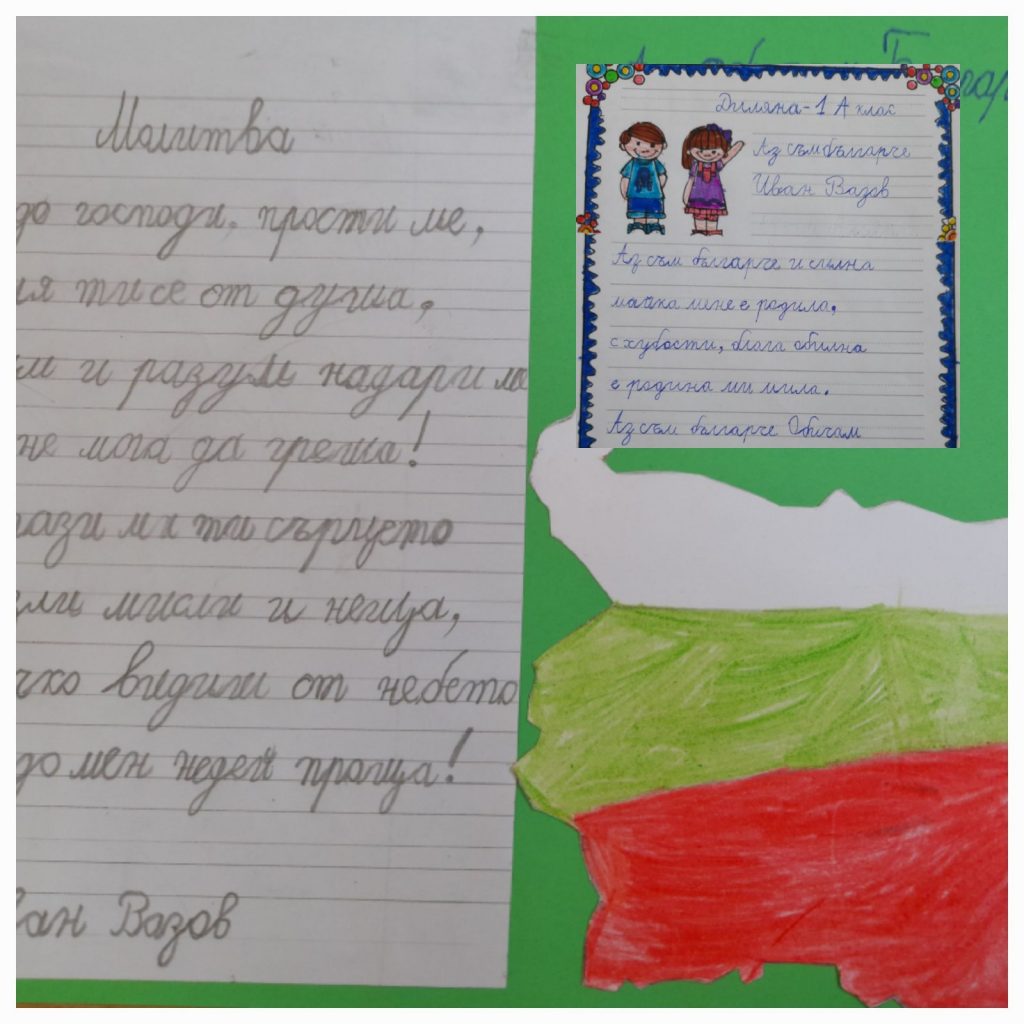 Молитва
до господи, прости ме,
ля ти се от душа,
м и разум надари ме
не мога да греша!
пази ми ти сърцето
зли мисли и неща,
чко видиш от небето
до мен недей праща!
ван Вазов
Диляна-1 А клас
Аз съм българче
Иван Вазов
Аз съм българче и силна
майка мене е родила,
с хубости, блага обилна
е родина ми мила.
Аз съм българче Обичам